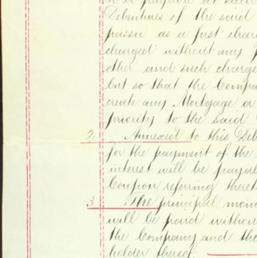 to be payable at such
Debentures of the said
passu as a first charge
charged without any p
other and such charge
but so that the Compan
create any Mortgage or
priority to the said
2. Annexed to this Deb
for the payment of the
interest will be payab
Coupon referring theret
3. The principal mone
will be paid without
the Company and the
holder thereof.